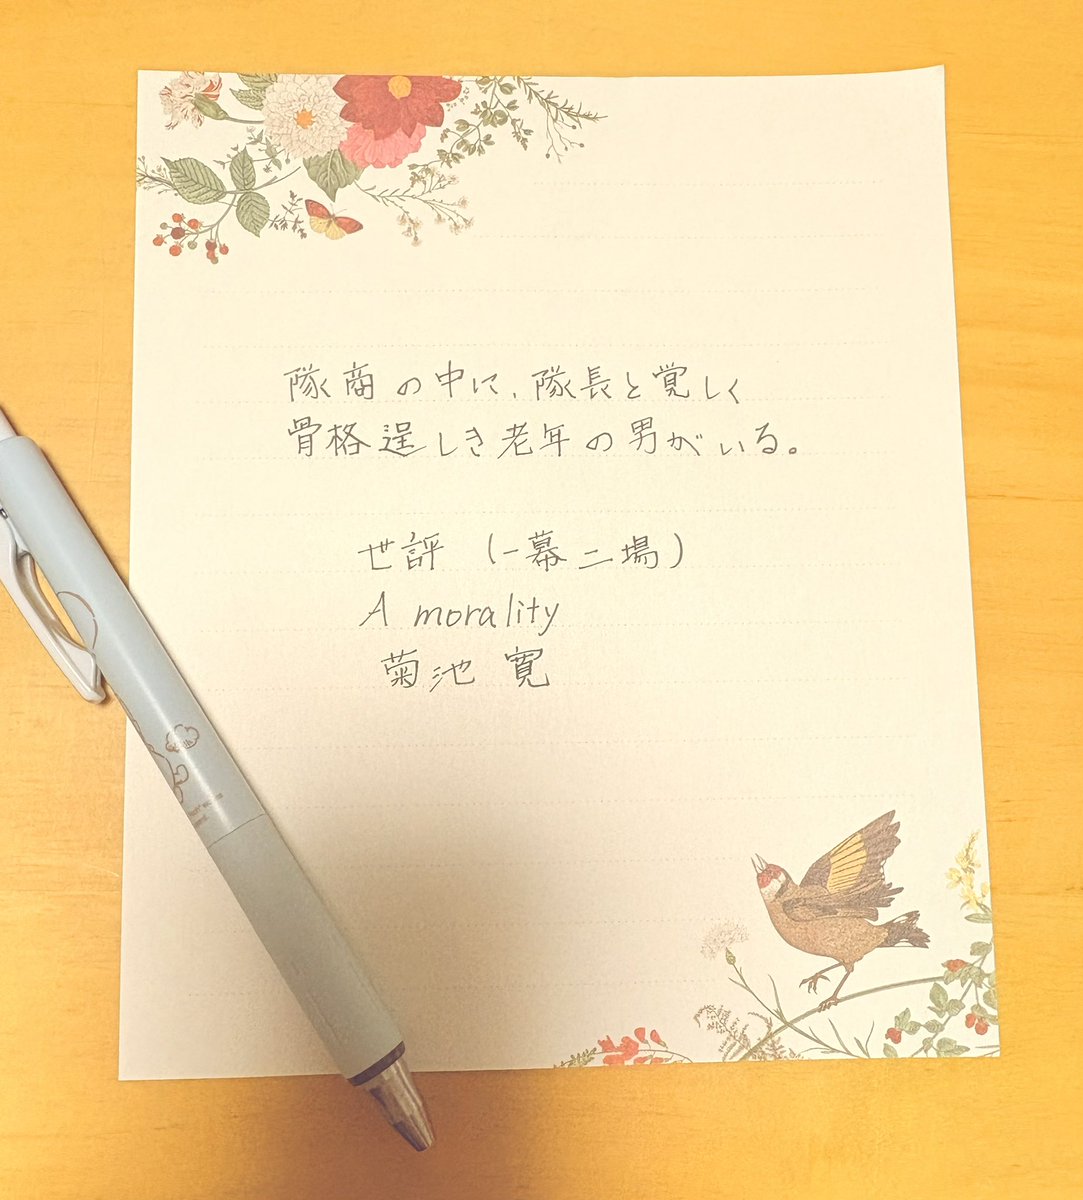 隊商の中に、隊長と覚しく
骨格逞しき老年の男がいる。
世評（一幕二場）
A morality
菊池 寛